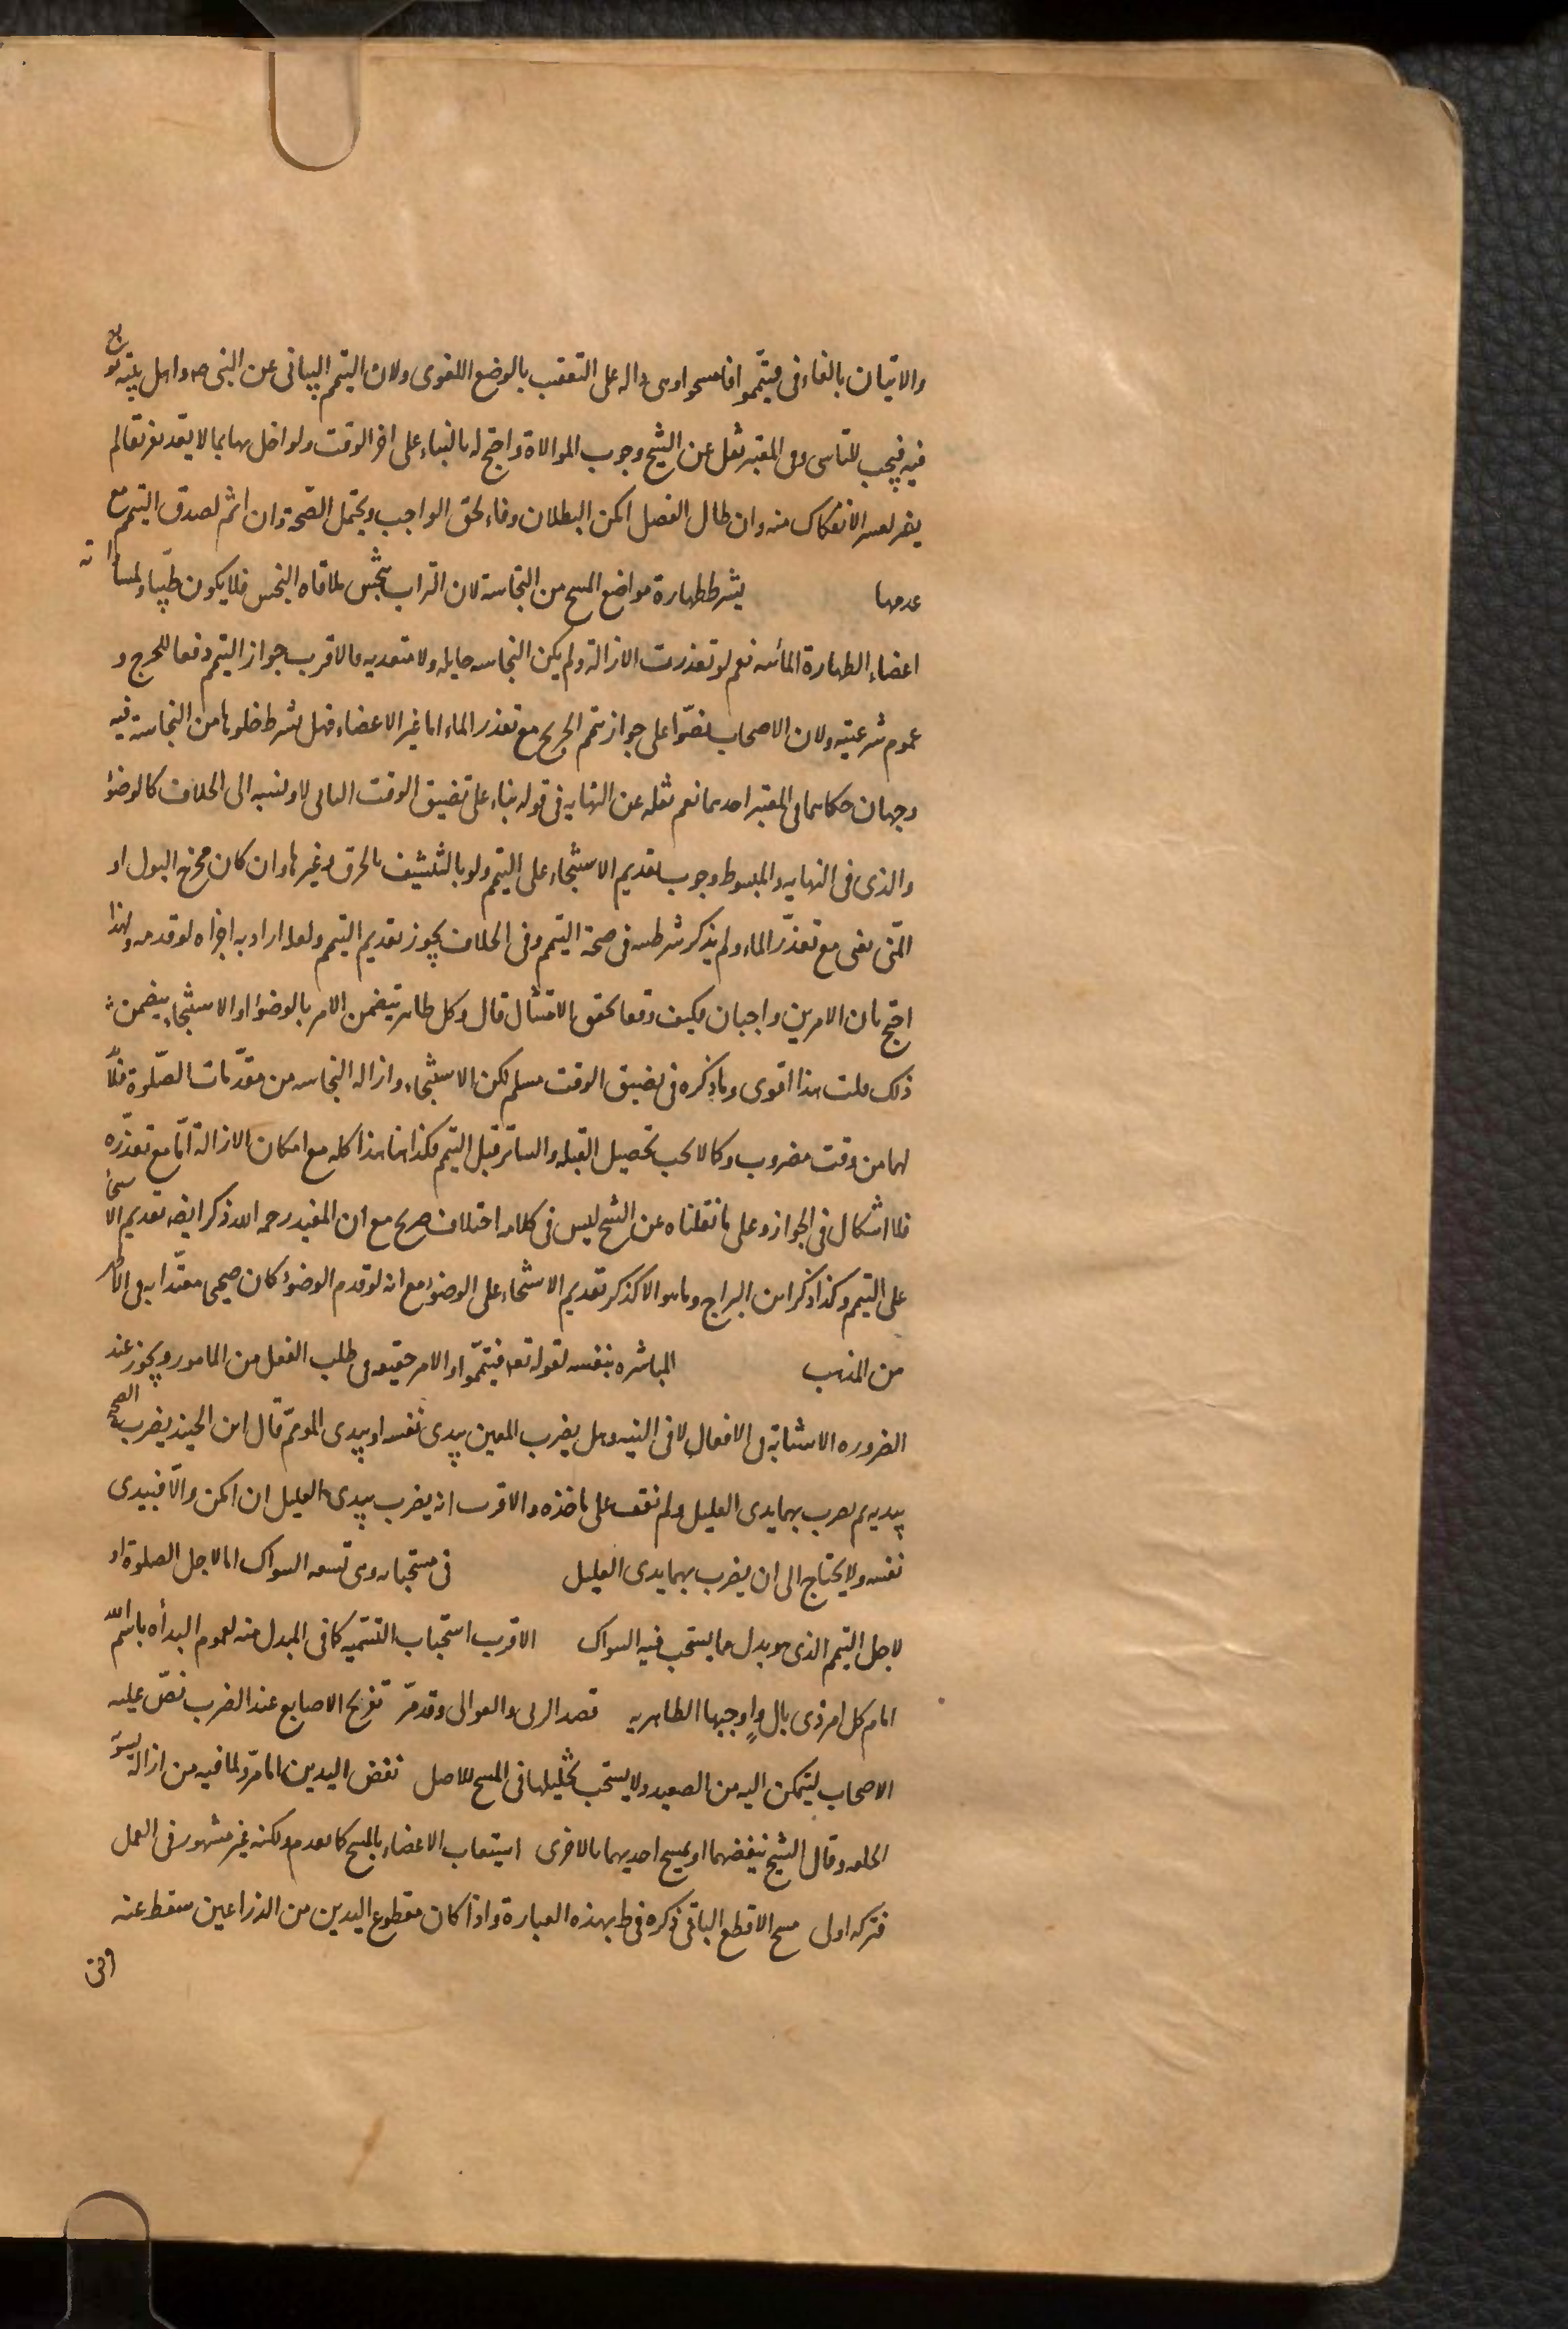 والاتيان بالفاء فى فتيمموا فامسحوا وهى داله على التعقيب بالوضع اللغوى ولان التيمم البيانى عن النبى ص واهل بيته توبع
فيه فيجب للتاسى وفى المعتبر نقل عن الشيخ وجوب الموالاة واحتج له بالبناء على اخر الوقت ولو اخل بها بما لا يعد تفريقا لم
يضر لعسر الانفكاك منه وان طال الفصل امكن البطلان وفاء لحق الواجب ويحتمل الصحة وان اثم لصدق التيمم مع
عدمها يشترط طهارة مواضع المسح من النجاسة لان التراب ينجس بملاقاه النجس فلا يكون طيبا ولمساواته
اعضاء الطهارة المائيه نعم لو تعذرت الازالة ولم يكن النجاسه حايله ولا متعديه فالاقرب جواز التيمم دفعا للحرج و
عموم شرعيته ولان الاصحاب نصوا على جواز تيمم الجريح مع تعذر الماء اما غير الاعضاء فهل يشترط خلوها من النجاسة فيه
وجهان حكاهما فى المعتبر احدهما نعم نقله عن النهايه فى قوله بناء على تضيق الوقت الثانى لا ونسبه الى الخلاف كالوضؤ
والذى فى النهايه والمبسوط وجوب تقديم الاستنجاء على التيمم ولو بالتنشيف بالخرق وغيرها وان كان مخرج البول او
المنى نفى مع تعذر الماء ولم يذكر شرطيه فى صحة التيمم وفى الخلاف يجوز تقديم التيمم ولعله اراد به اجزاه لو قدمه ولهذا
احتج بان الامرين واجبان فكيف وقعا تحقق الامتثال قال وكل ظاهر يتضمن الامر بالوضؤ او الاستنجاء يتضمن
ذلك قلت هذا اقوى وما ذكره فى تضيق الوقت مسلم لكن الاستنجاء وازاله النجاسه من مقدمات الصلوة فلا بد
لهما من وقت مضروب وكما لا يجب تحصيل القبله والساتر قبل التيمم فكذا هنا هذا كله مع امكان الازالة اما مع تعذره
فلا اشكال فى الجواز وعلى ما نقلناه عن الشيخ ليس فى كلامه اختلاف صريح مع ان المفيد رحمه الله ذكر ايضا تقديم الاستنجا
على التيمم وكذا ذكر ابن البراج وما هو الا كذكر تقديم الاستنجاء على الوضؤ مع انه لو قدم الوضؤ كان صحيحا معتدا به فى الاظهر
من المذهب المباشره بنفسه لقوله تعه فتيمموا والامر حقيقه فى طلب الفعل من المامور ويجوز عند
الضروره الاستنابة فى الافعال لا فى النيه وهل يضرب المعين بيدى نفسه او بيدى الموئم قال ابن الجنيد يضرب الصحيح
بيديه ثم يضرب بهما يدى العليل ولم نقف على ماخذه والاقرب انه يضرب بيدى العليل ان امكن والا فبيدى
نفسه ولا يحتاج الى ان يضرب بهما يدى العليل فى مستحباته وهى تسعه السواك اما لاجل الصلوة او
لاجل التيمم الذى هو بدل مما يستحب فيه السواك الاقرب استحباب التسميه كما فى المبدل منه لعموم البدأه باسم الله
امام كل امر ذى بال واوجبها الظاهريه قصد الربى والعوالى وقد مر تفريج الاصابع عند الضرب نص عليه
الاصحاب ليتمكن اليه من الصعيد ولا يستحب تخليلها فى المسح للاصل نفض اليدين لما مر ولما فيه من ازالة تشويه
الخلقه وقال الشيخ ينفضهما او يمسح احديهما بالاخرى استيعاب الاعضاء بالمسح كما تقدم ولكنه غير مشهور فى العمل
فتركه اولى مسح الاقطع الباقى ذكره فى ط بهذه العبارة واذا كان مقطوع اليدين من الذراعين سقط عنه